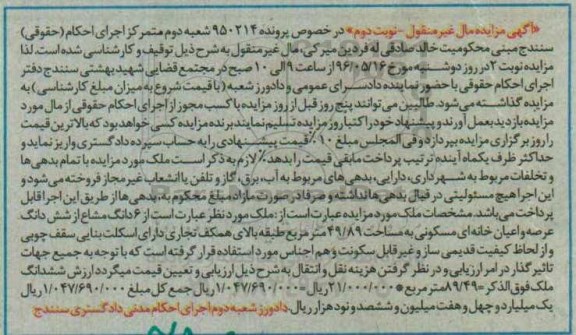 «آگهی مزایده مال غیر منقول -نوبت دوم» در خصوص پرونده ۹۵۰۲۱۴ شعبه دوم متمرکز اجرای احکام (حقوقی)
سنندج مبنی محکومیت خالد صادقی له فردین میرکی، مال غیر منقول به شرح ذیل توقیف و کارشناسی شده است. لذا
مزایده نوبت ۲ در روز دوشنبه مورخ ۹۶/۰۵/۱۶ از ساعت ۹ الی ۱۰ صبح در مجتمع قضایی شهید بهشتی سنندج دفتر
اجرای احکام حقوقی با حضور نماینده دادسرای عمومی و دادورز شعبه (با قیمت شروع به میزان مبلغ کارشناسی) به
مزایده گذاشته می شود. طالبین می توانند پنج روز قبل از روز مزایده با کسب مجوز از اجرای احکام حقوقی از مال مورد
مزایده بازدید بعمل آورند و پیشنهاد خود را کتبا روز مزایده تسلیم نمایند برنده مزایده کسی خواهد بود که بالاترین قیمت
را روز برگزاری مزایده بپردازد و فی المجلس مبلغ ۱۰٪ قیمت پیشنهادی را به حساب سپرده دادگستری واریز نماید و
حداکثر ظرف یکماه آینده ترتیب پرداخت مابقی قیمت را بدهد٪ لازم به ذکر است ملک مورد مزایده با تمام بدهی ها
و تخلفات مربوط به شهرداری، دارایی، بدهی های مربوط به آب، برق، گاز و تلفن یا انشعاب غیر مجاز فروخته می شود و
این اجرا هیچ مسئولیتی در قبال بدهی ها نداشته و صرفا در صورت مازاد، مبلغ محکوم به، بدهی ها از طریق این اجرا قابل
پرداخت می باشد. مشخصات ملک مورد مزایده عبارت است از: ملک مورد نظر عبارت است از ۶ دانگ مشاع از شش دانگ
عرصه واعیان خانه ای مسکونی به مساحت ۴۹/۸۹ متر مربع طبقه بالای همکف تجاری دارای اسکلت بنایی سقف چوبی
و از لحاظ کیفیت قدیمی ساز و غیر قابل سکونت و هم اجناس مورد استفاده قرار گرفته است که با توجه به جمیع جهات
تاثیر گذار در امر ارزیابی و در نظر گرفتن هزینه نقل و انتقال به شرح ذیل ارزیابی و تعیین قیمت میگردد ارزش ششدانگ
ملک فوق الذکر = ۸۹/۴۹ متر مربع * ۲۱/۰۰۰/۰۰۰ ریال = ۱/۰۴۷/۶۹۰/۰۰۰ ریال جمع کل مبلغ ۱/۰۴۷/۶۹۰/۰۰۰ ریال
یک میلیارد و چهل و هفت میلیون و ششصد و نود هزار ریال. دادورز شعبه دوم اجرای احکام مدنی دادگستری سنندج